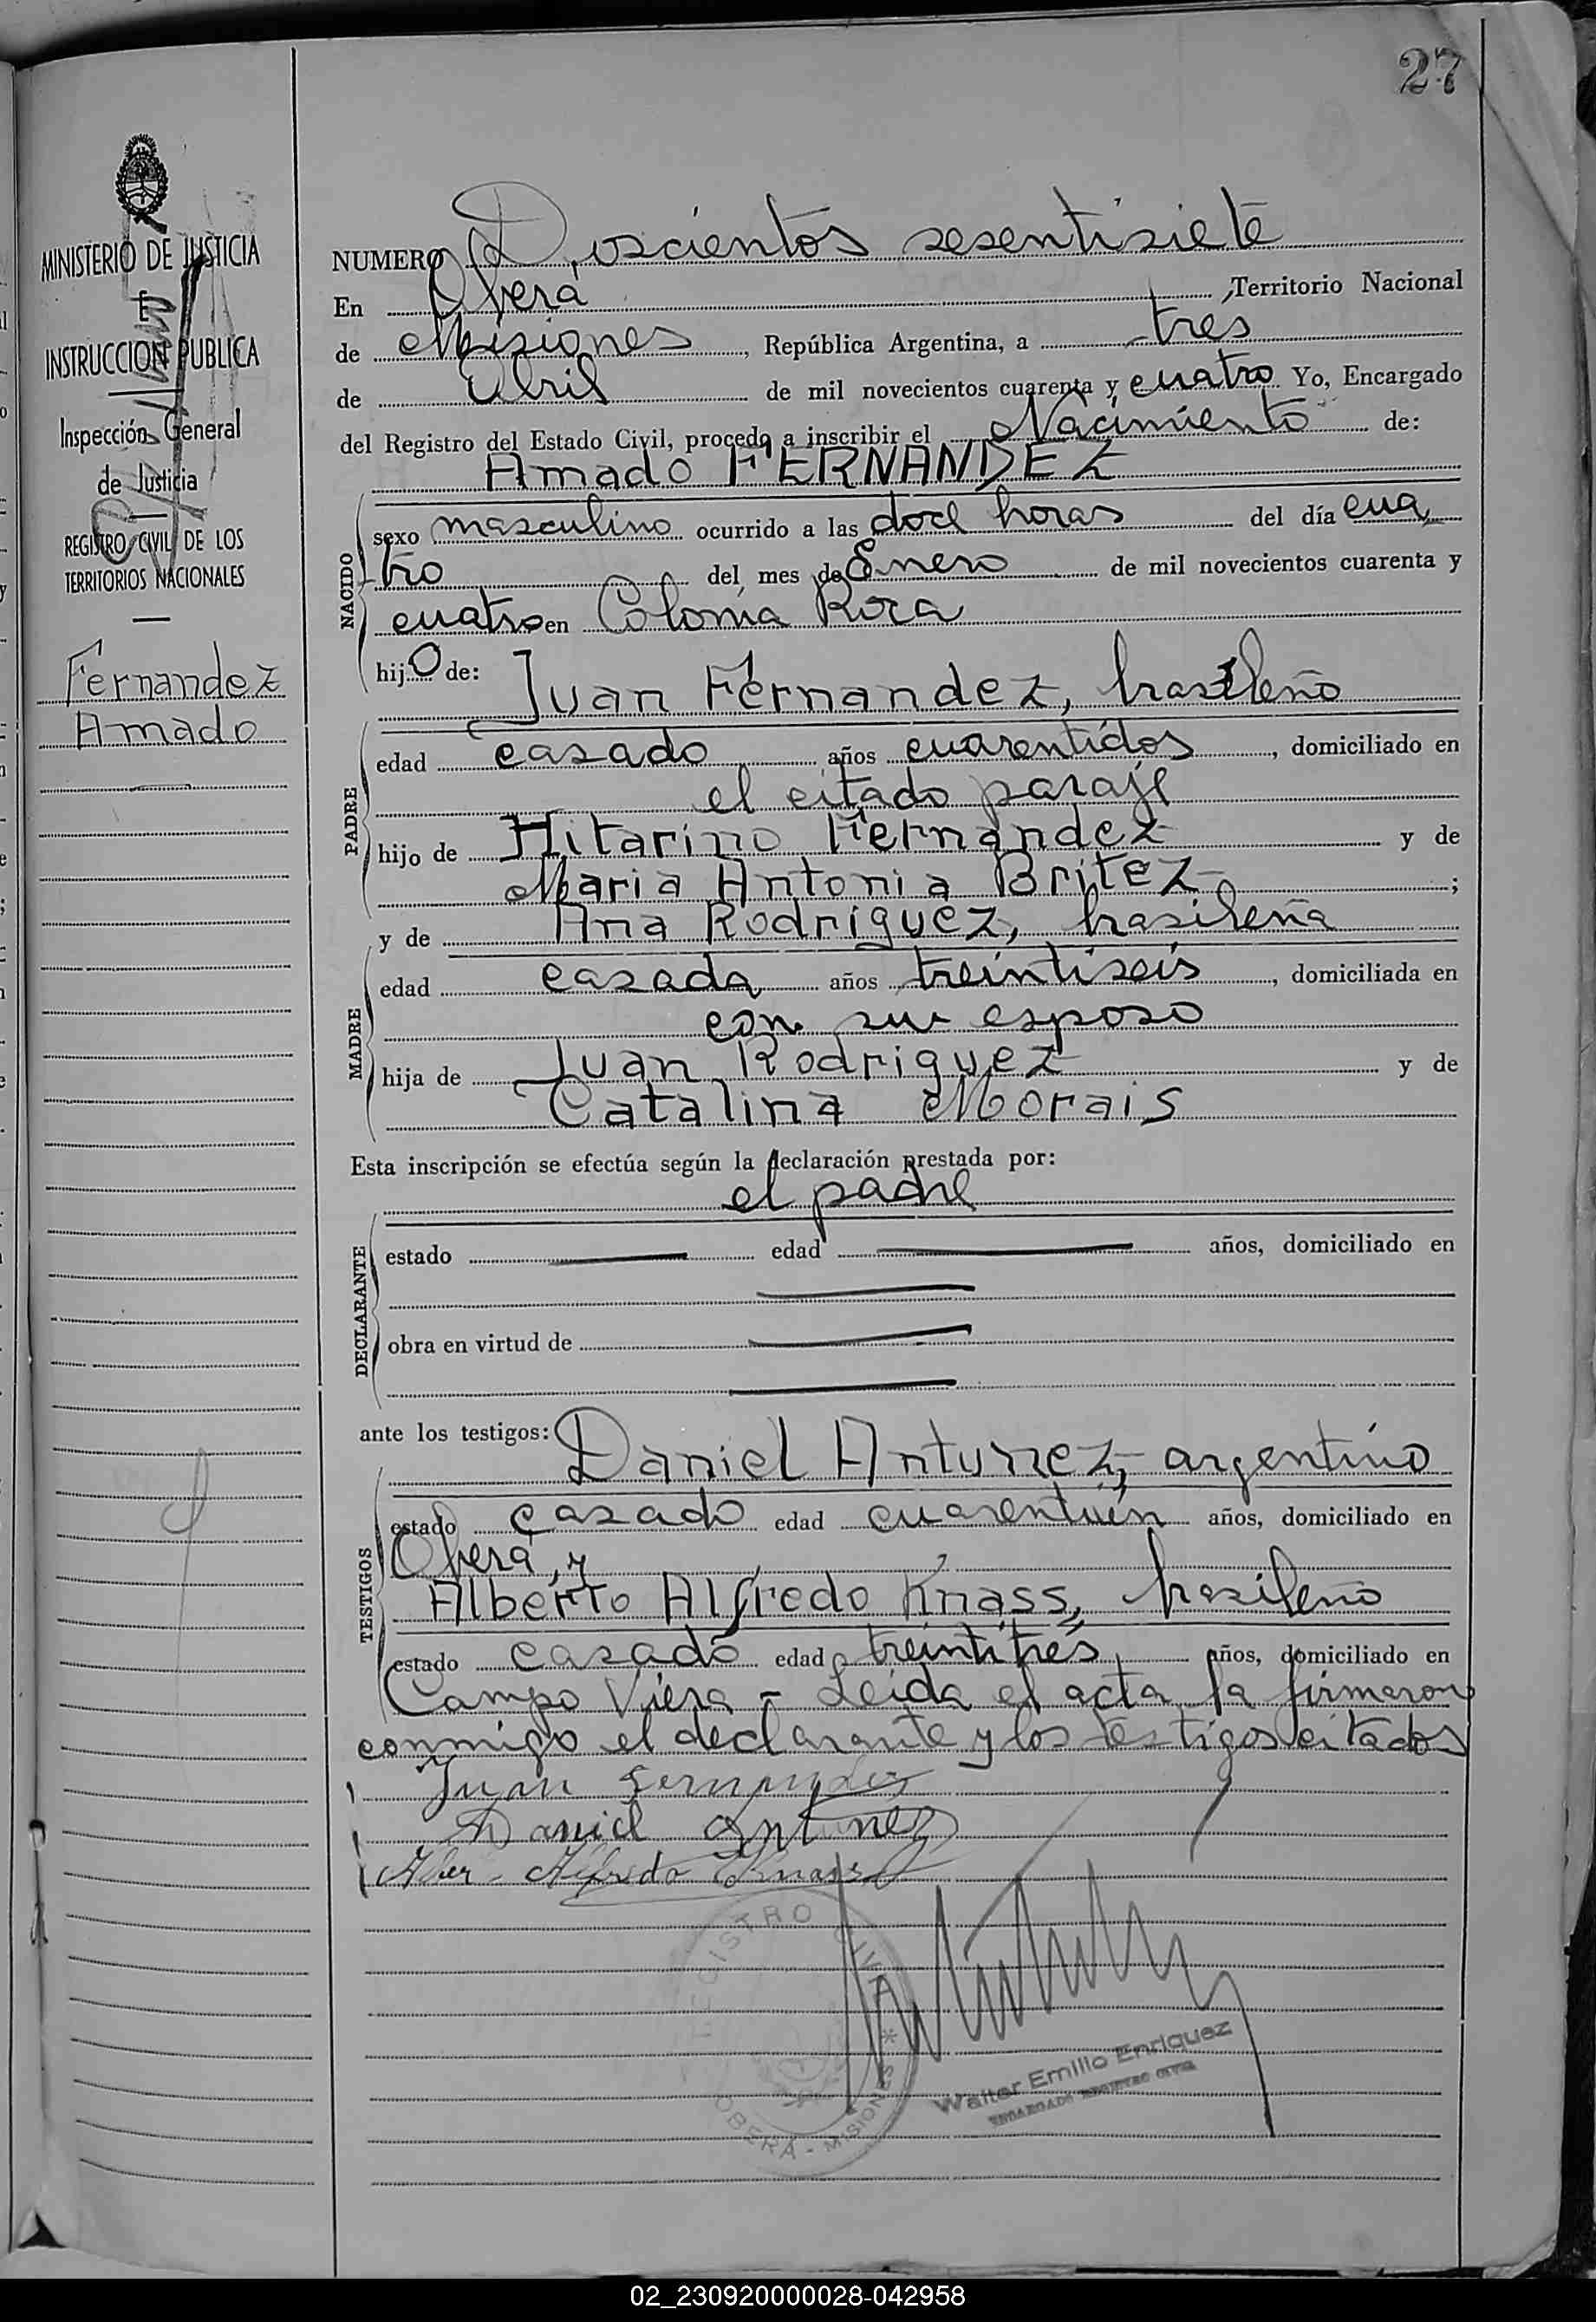 27
MINISTERIO DE JUSTICIA
E
INSTRUCCION PUBLICA
Inspección General
de Justicia
REGISTRO CIVIL DE LOS
TERRITORIOS NACIONALES
Fernandez
Amado
NUMERO Doscientos sesentisiete
En Oberá, Territorio Nacional
de Misiones, República Argentina, a tres
de Abril de mil novecientos cuarenta y cuatro Yo, Encargado
del Registro del Estado Civil, procedo a inscribir el Nacimiento de:
Amado FERNANDEZ
NACIDO
sexo masculino ocurrido a las doce horas del día cua
tro del mes de Enero de mil novecientos cuarenta y
cuatro en Colonia Roca
hijo de:
Juan Fernandez, brasileño
PADRE
edad casado años cuarentidos, domiciliado en
el citado paraje
hijo de Hitarino Fernandez y de
Maria Antonia Britez;
y de Ana Rodriguez, brasileña
MADRE
edad casada años treintiseis, domiciliada en
con su esposo
hija de Juan Rodriguez y de
Catalina Morais
Esta inscripción se efectúa según la declaración prestada por:
el padre
DECLARANTE
estado edad años, domiciliado en
obra en virtud de
ante los testigos:
Daniel Antunez, argentino
TESTIGOS
estado casado edad cuarentiún años, domiciliado en
Oberá, y
Alberto Alfredo Knass, brasileño
estado casado edad treintitrés años, domiciliado en
Campo Viera - Leida el acta la firmaron
conmigo el declarante y los testigos citados
Juan Fernandez
Daniel Antunez
Alber - Alfredo Knass
REGISTRO CIVIL * OBERÁ - MISIONES
Walter Emilio Enriquez
ENCARGADO REGISTRO CIVIL
02_230920000028-042958